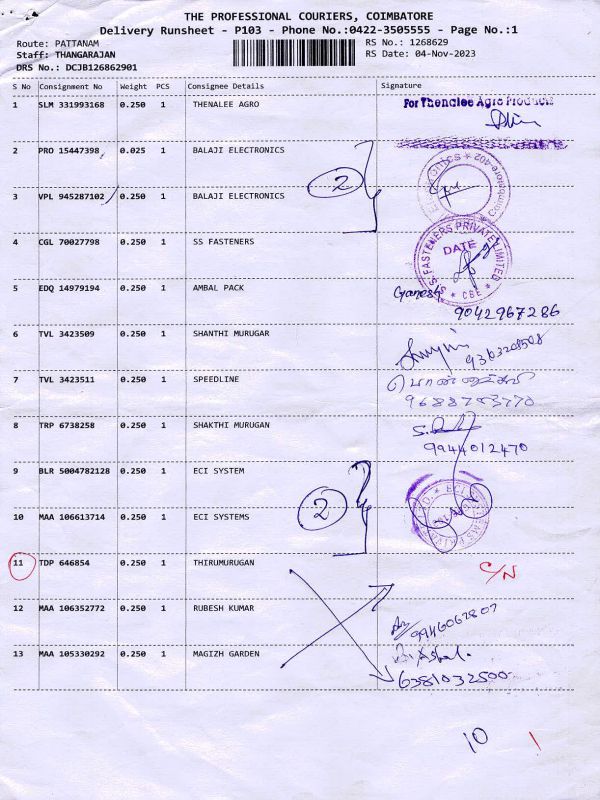 THE PROFESSIONAL COURIERS, COIMBATORE
Delivery Runsheet - P103 - Phone No.:0422-3505555 - Page No.:1
Route: PATTANAM
RS No.: 1268629
Staff: THANGARAJAN
RS Date: 04-Nov-2023
DRS No.: DCJB126862901
S No Consignment No Weight PCS Consignee Details Signature
1 SLM 331993168 0.250 1 THENALEE AGRO For Thenalee Agro Products
2 PRO 15447398 0.025 1 BALAJI ELECTRONICS
2
3 VPL 945287102 0.250 1 BALAJI ELECTRONICS
4 CGL 70027798 0.250 1 SS FASTENERS S.S. FASTENERS PRIVATE LIMITED DATE CBE
5 EDQ 14979194 0.250 1 AMBAL PACK Ganesh
9042967286
6 TVL 3423509 0.250 1 SHANTHI MURUGAR
7 TVL 3423511 0.250 1 SPEEDLINE
8 TRP 6738258 0.250 1 SHAKTHI MURUGAN
9944012470
9 BLR 5004782128 0.250 1 ECI SYSTEM
2
10 MAA 106613714 0.250 1 ECI SYSTEMS
11 TDP 646854 0.250 1 THIRUMURUGAN C/N
12 MAA 106352772 0.250 1 RUBESH KUMAR
9946067807
13 MAA 105330292 0.250 1 MAGIZH GARDEN
6381032500
10 1